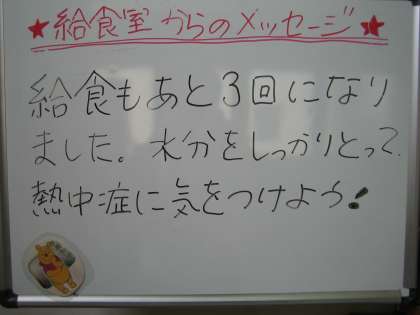 ★給食室からのメッセージ★
給食もあと3回になり
ました。水分をしっかりとって、
熱中症に気をつけよう!